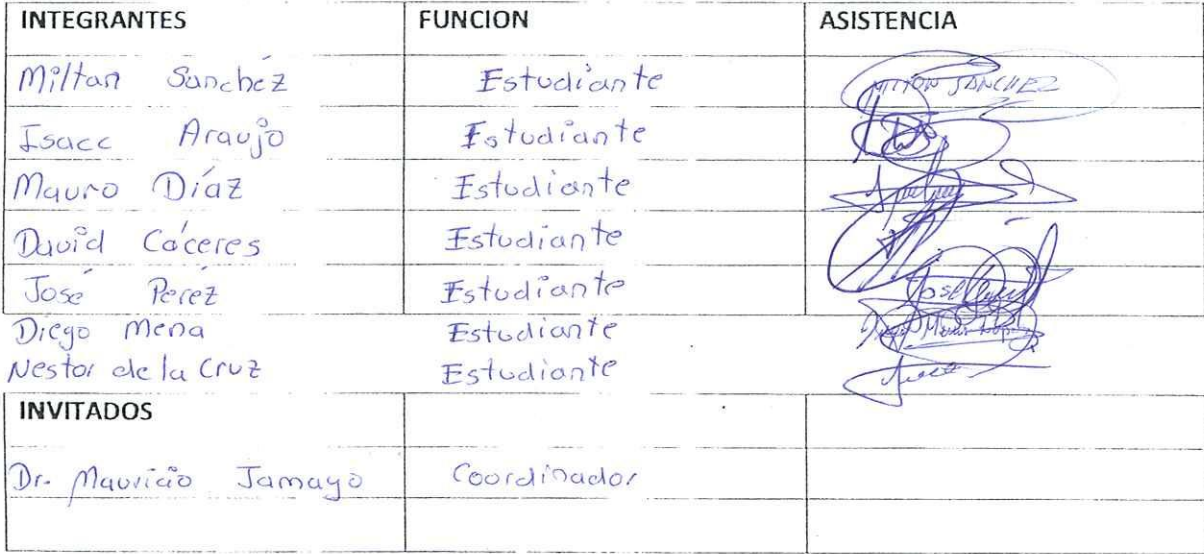 INTEGRANTES FUNCION ASISTENCIA
Miltan Sanchez Estudiante MILTON SANCHEZ
Isacc Araujo Estudiante
Mauro Díaz Estudiante
David Cáceres Estudiante
José Pérez Estudiante José
Diego Mena Estudiante Diego Mena
Nestor de la Cruz Estudiante
INVITADOS
Dr. Mauricio Jamayo Coordinador